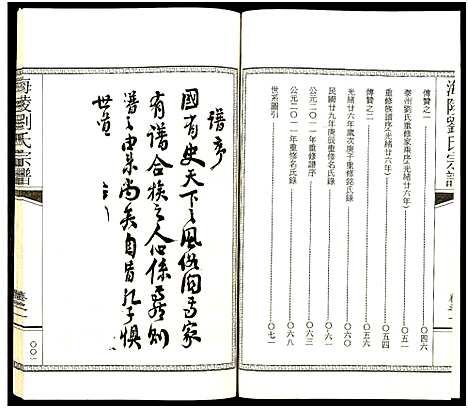 海陵劉氏宗譜
傳贊之一 〇四六
泰州劉氏重修家乘序(光緒廿六年) 〇五一
重修族譜序(光緒廿六年) 〇五四
傳贊之二 〇五五
光緒廿六年歲次庚子重修銘氏錄
民國廿九年庚辰重修名氏錄 〇六一
公元二〇一一年重修譜序 〇六三
公元二〇一一年重修名氏錄 〇六八
世系圖引 〇七一
譜序
國有史天下之風俗因焉家
有譜合族之人心係焉則
譜之由來尚矣自昔孔子懼
世道
海陵劉氏宗譜
卷之一
〇〇一